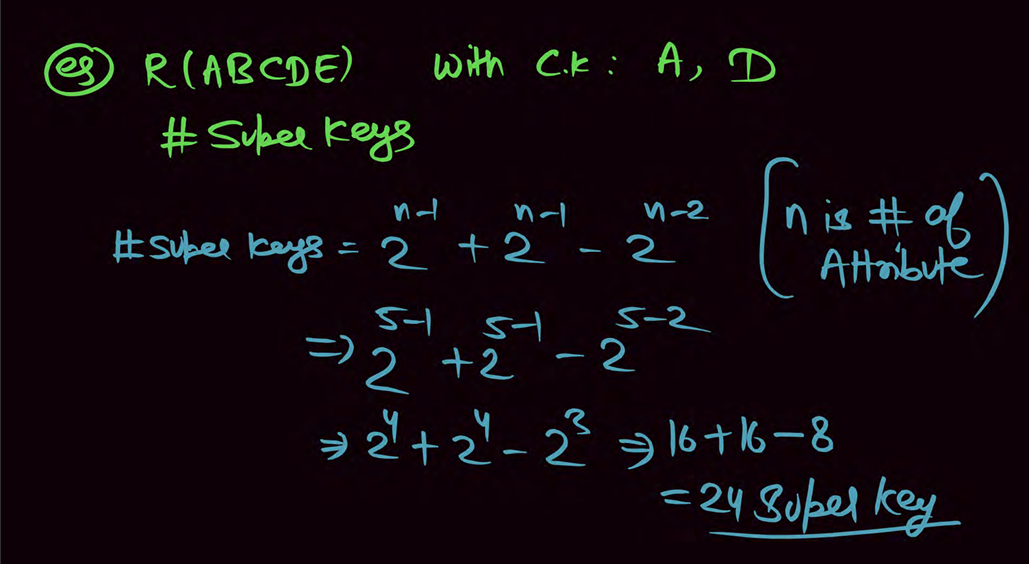 eg R(ABCDE) with C.K : A, D
# Super Keys
# Super keys = 2^(n-1) + 2^(n-1) - 2^(n-2) (n is # of Attribute)
=> 2^(5-1) + 2^(5-1) - 2^(5-2)
=> 2^4 + 2^4 - 2^3 => 16+16-8
= 24 Super key